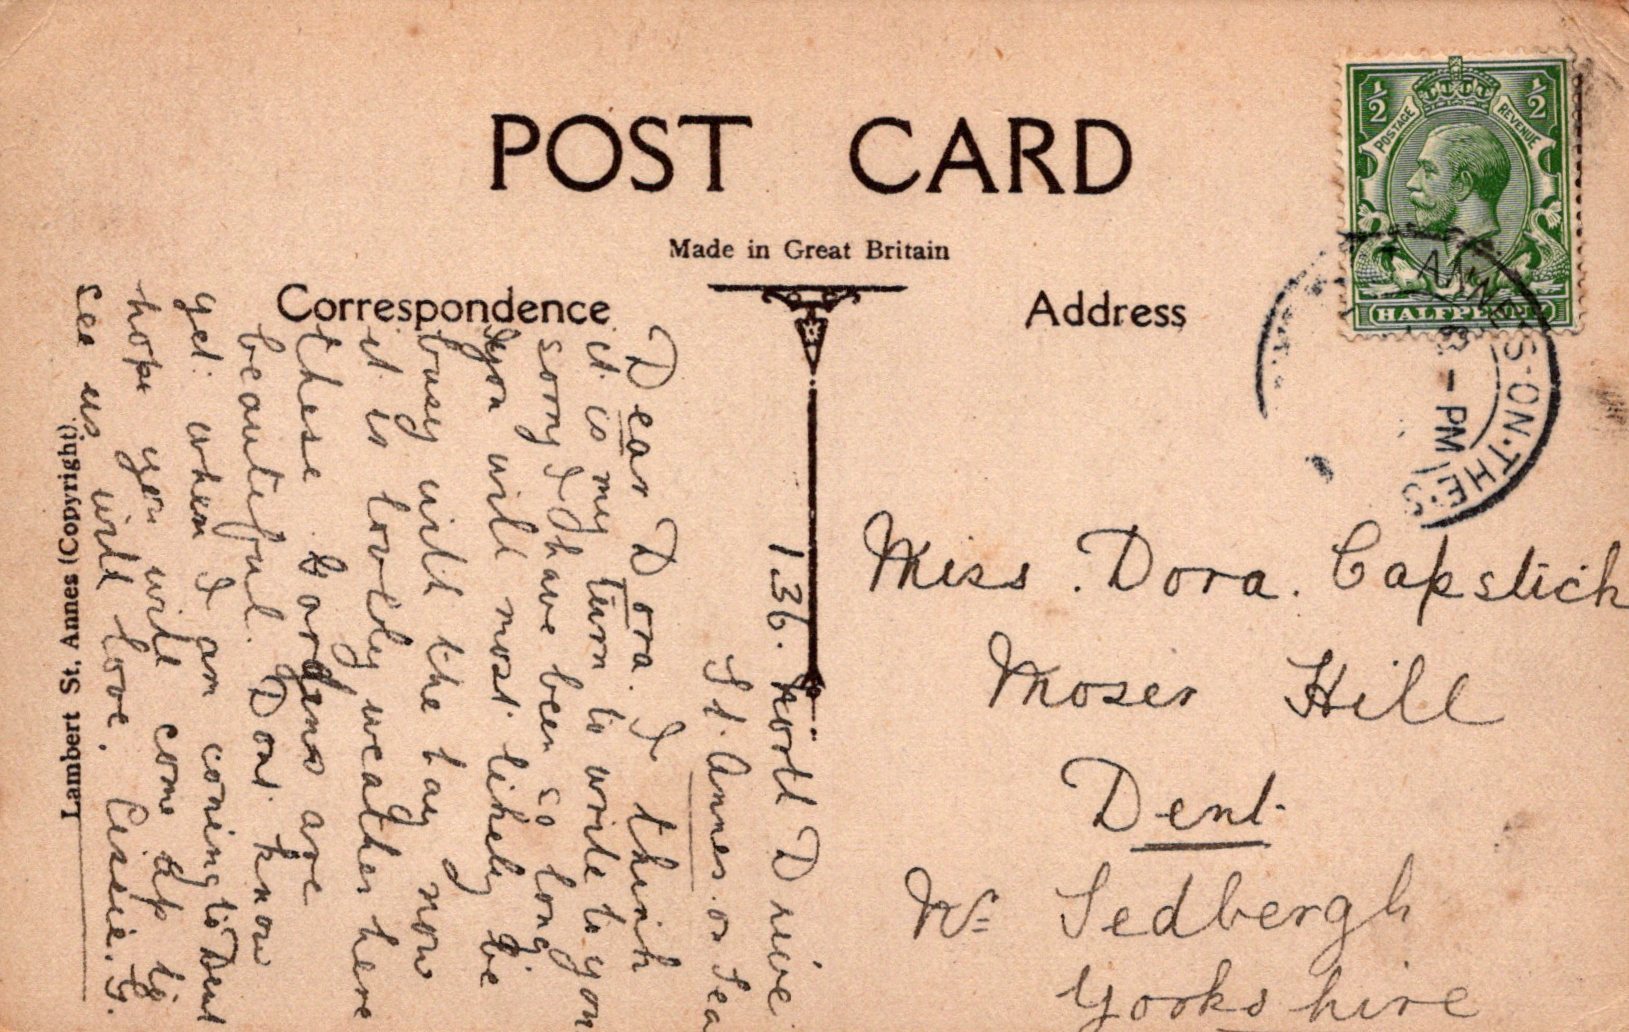 POST CARD
Made in Great Britain
Correspondence
Address
½ ½
POSTAGE REVENUE
HALFPENNY
ANNE'S-ON-THE-S
- PM
136. North Drive
St. Annes. on Sea
Dear Dora. I think
it is my turn to write to you
sorry I have been so long
you will most likely be
busy with the hay now
it is lovely weather here
these Gardens are
beautiful. Dont know
yet when I am coming to Dent
hope you will come up to
see us with love. Cissie. G.
Lambert St. Annes (Copyright).
Miss. Dora. Capstick
Moser Hill
Dent.
Nr Sedbergh
Yorkshire